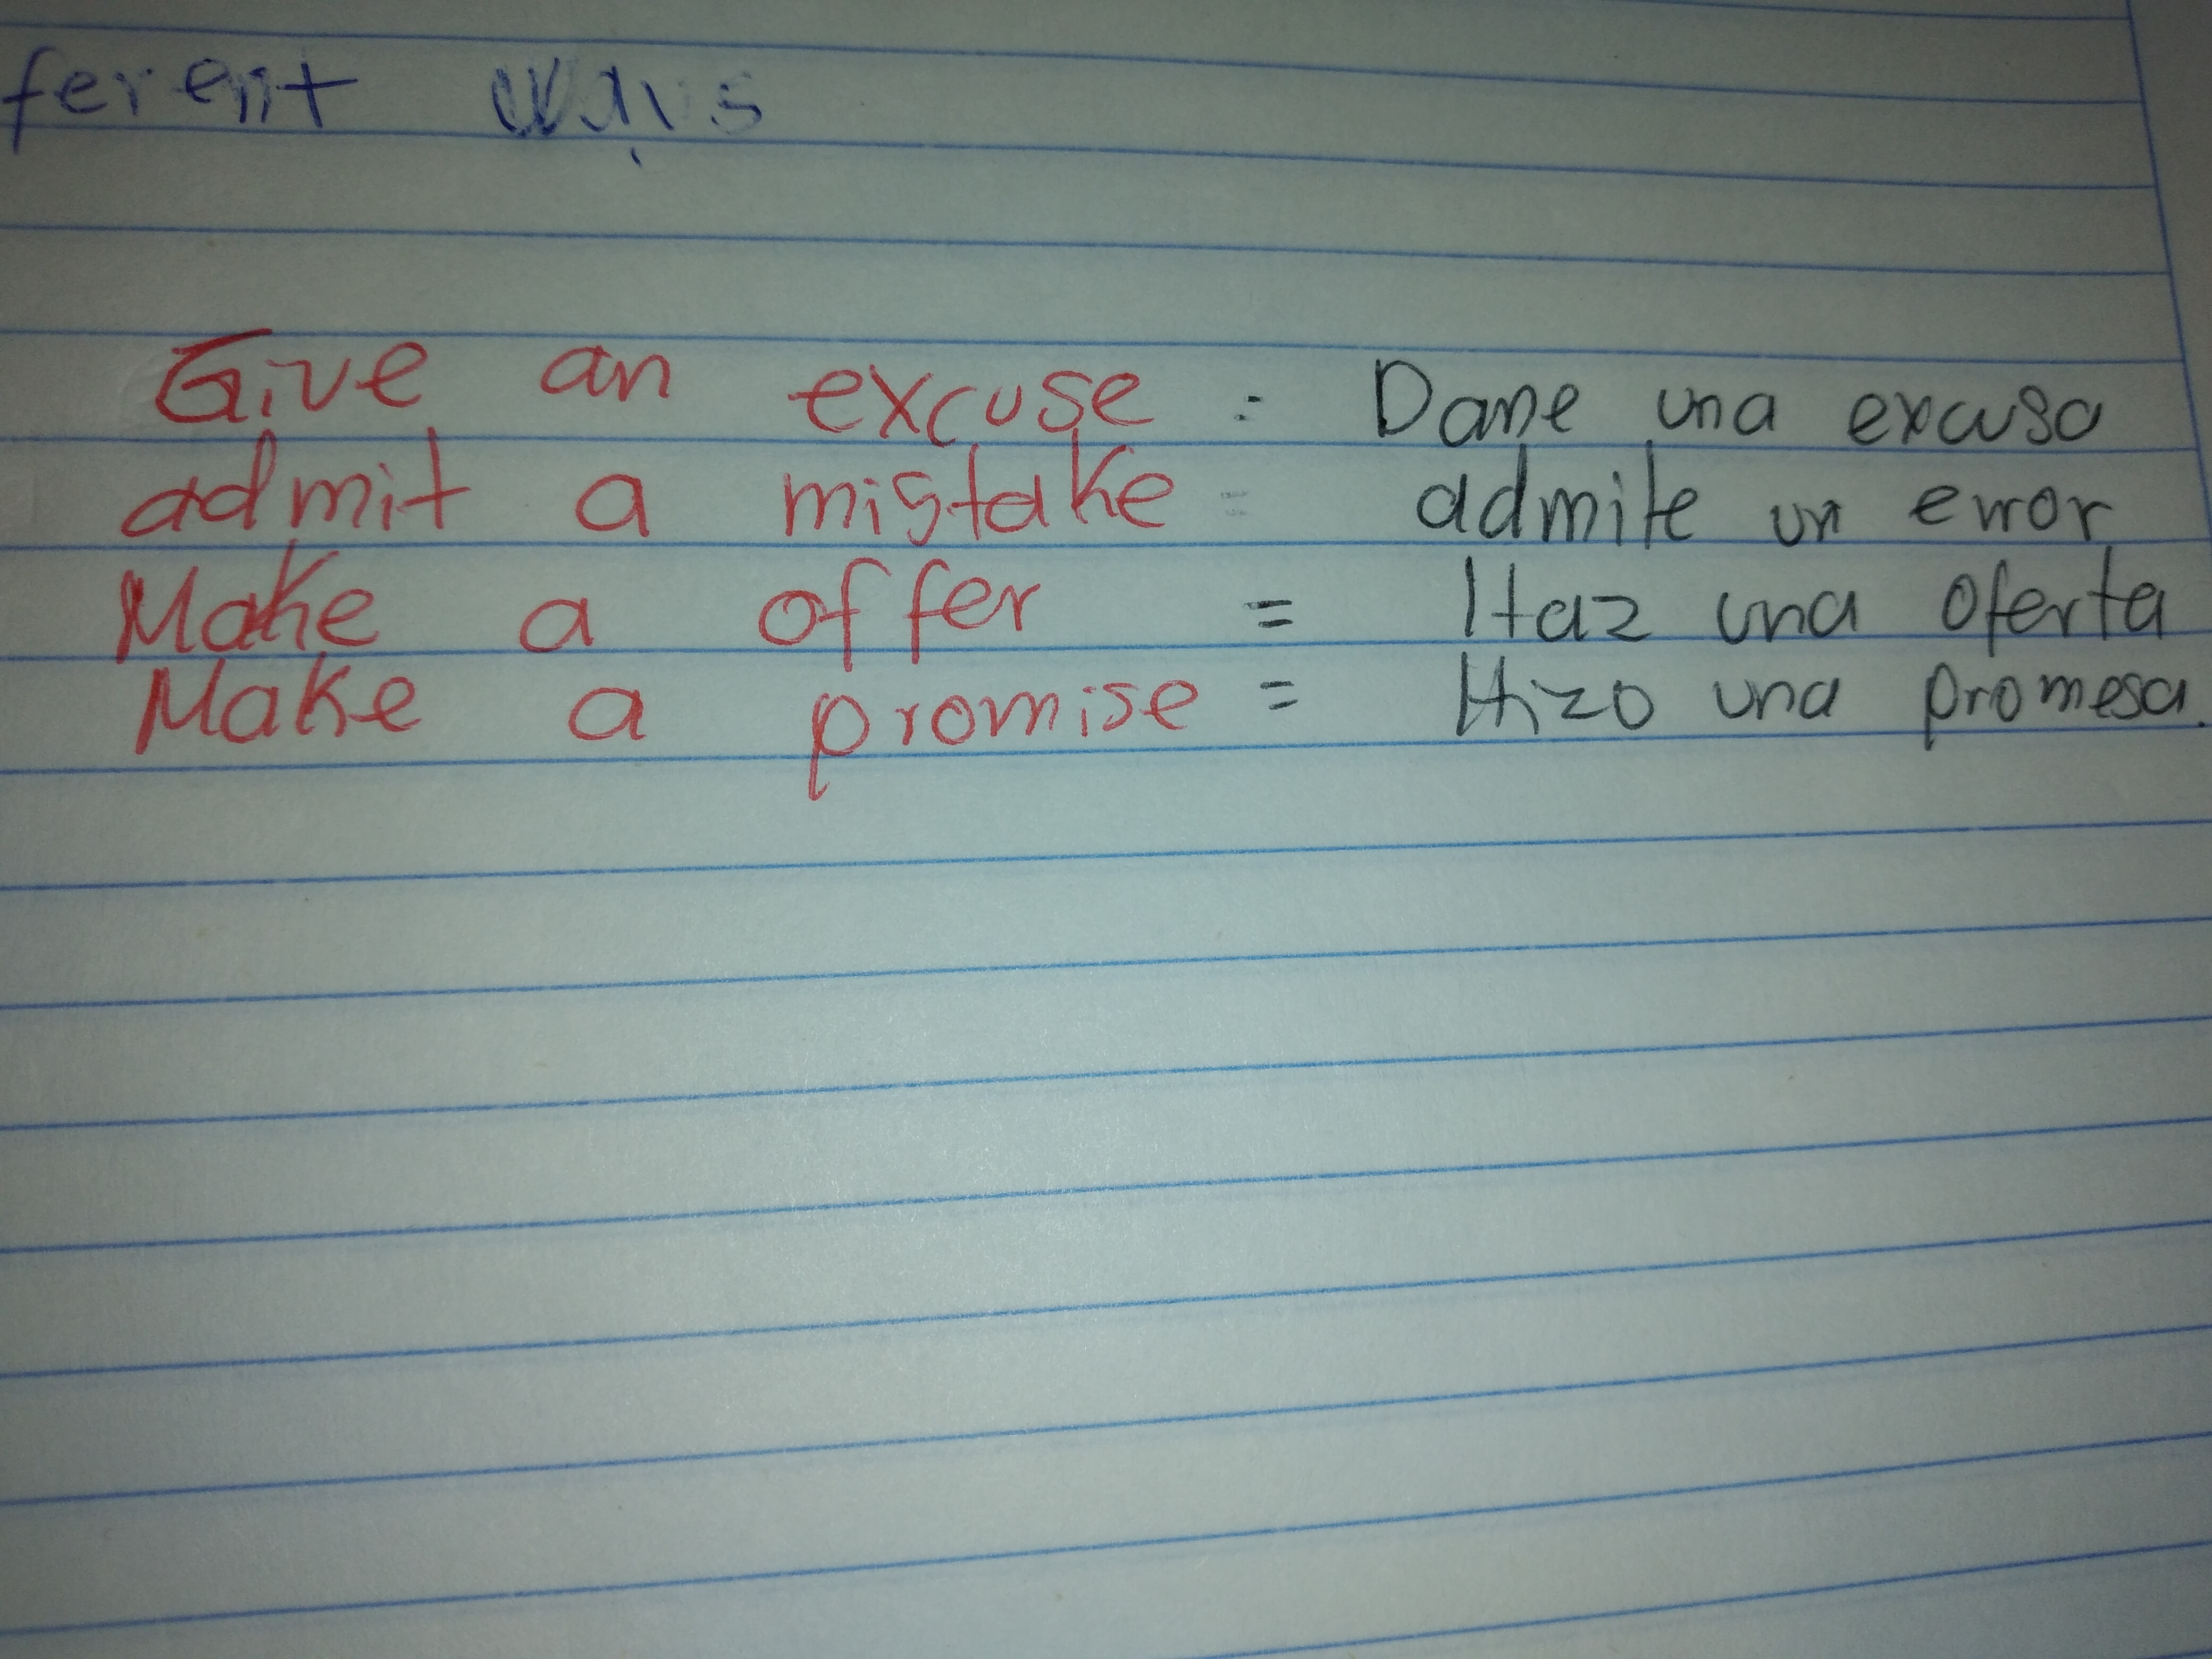 ferent ways
Give an excuse = Dame una excusa
admit a mistake = admite un error
Make a offer = Haz una oferta
Make a promise = Hizo una promesa.